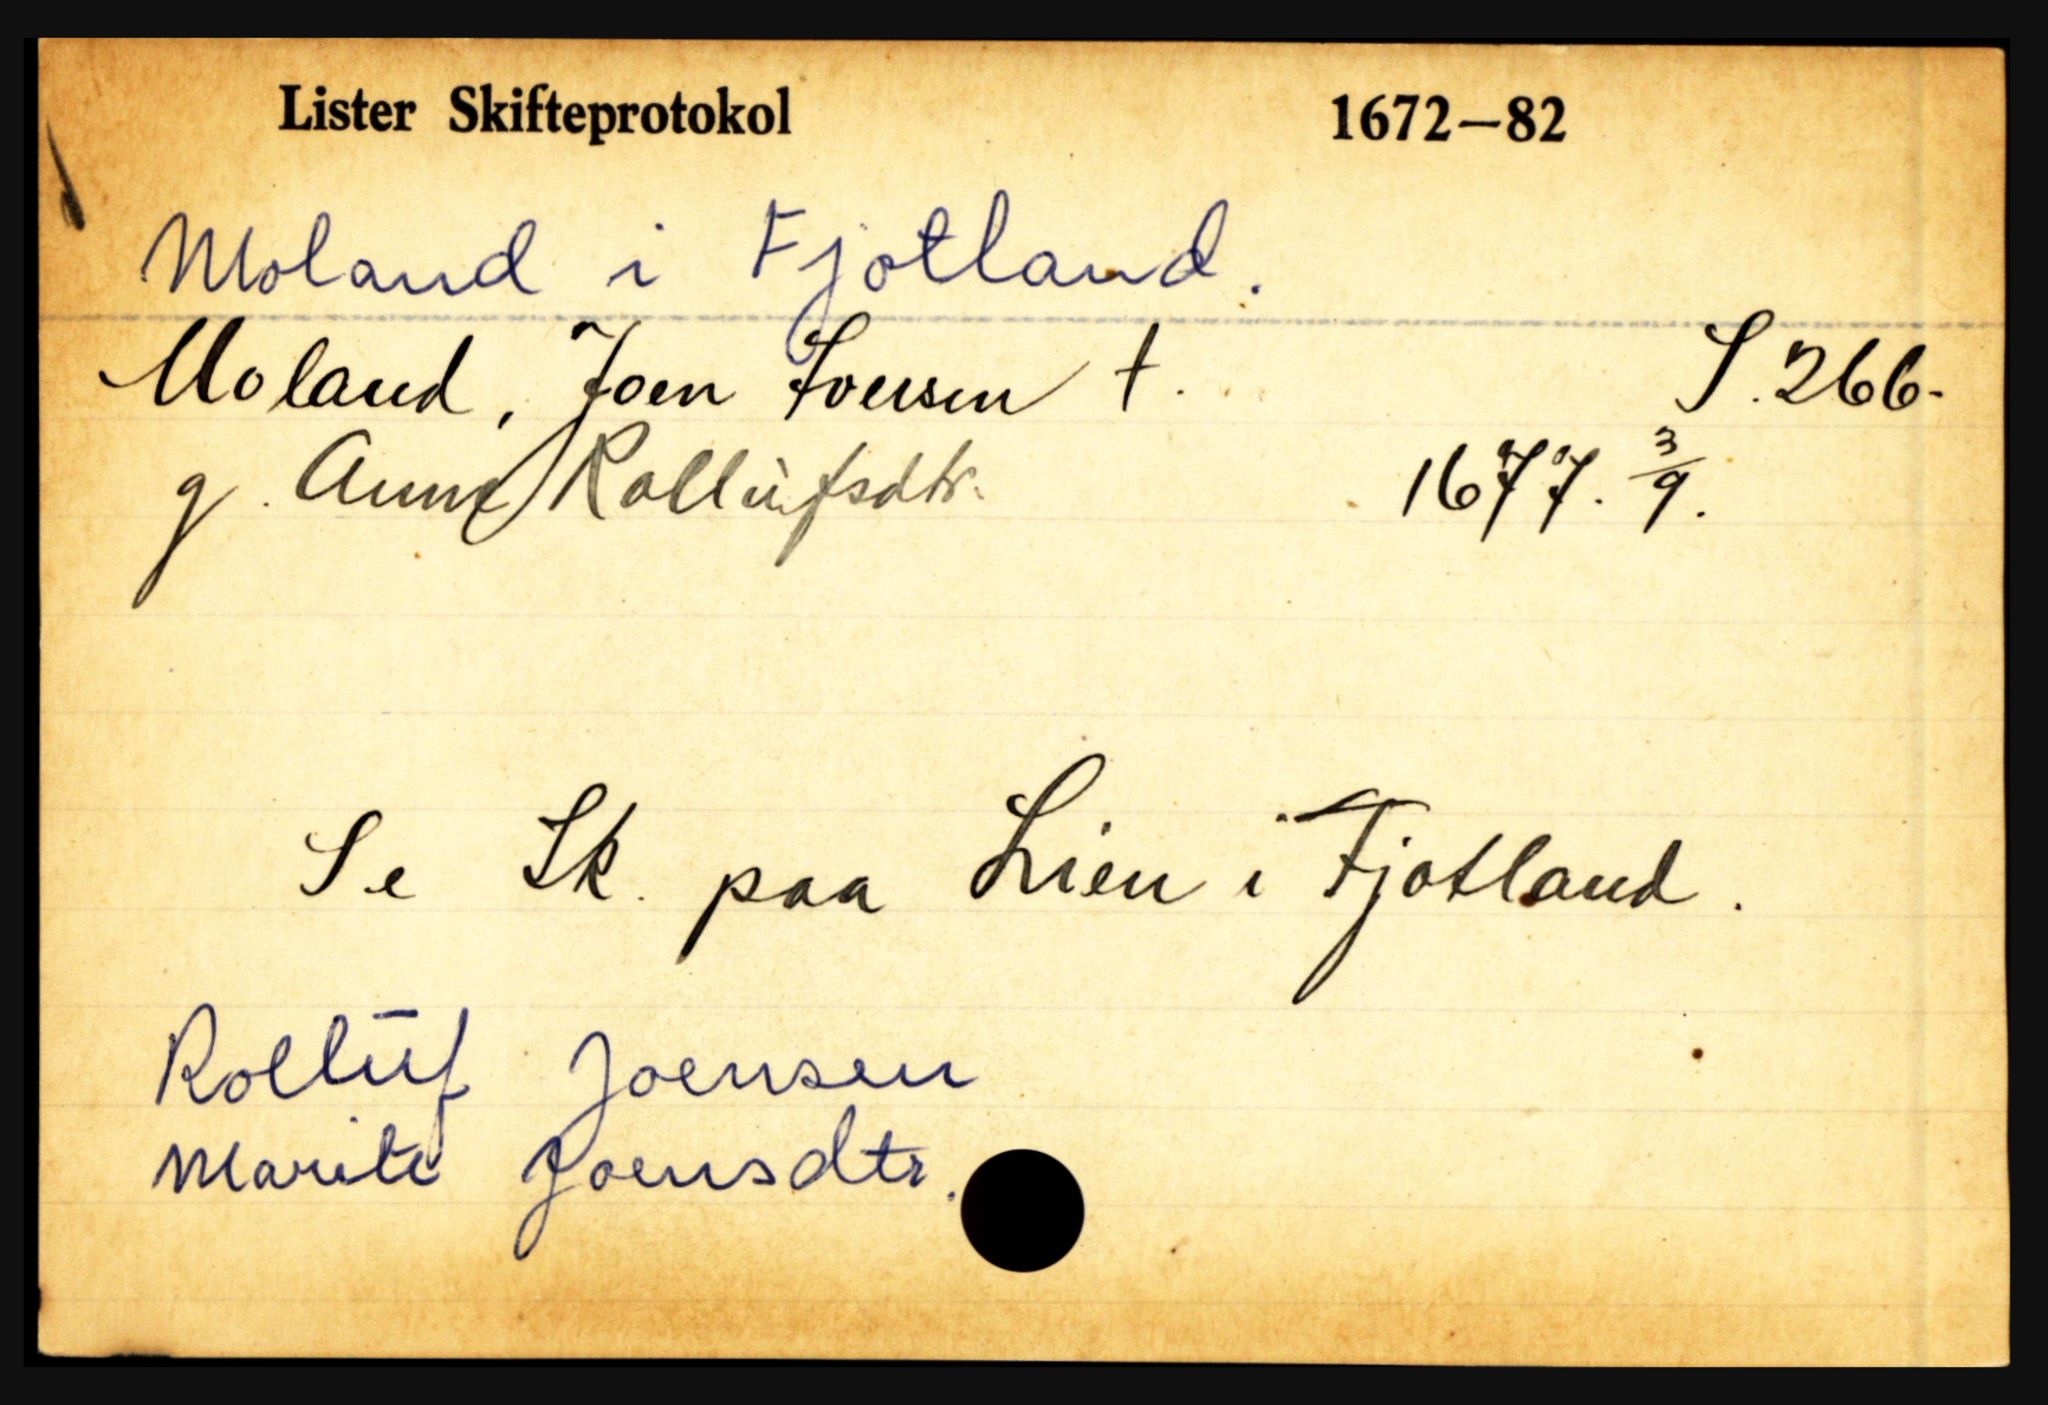 Lister Skifteprotokol 1672—82
Moland i Fjotland.
Moland, Joen Iversen †. S. 266.
g. Anne Rollufsdtr. 1677. 3/9.
Se Sk. paa Lien i Fjotland.
Rolluf Joensen
Marite Joensdtr.